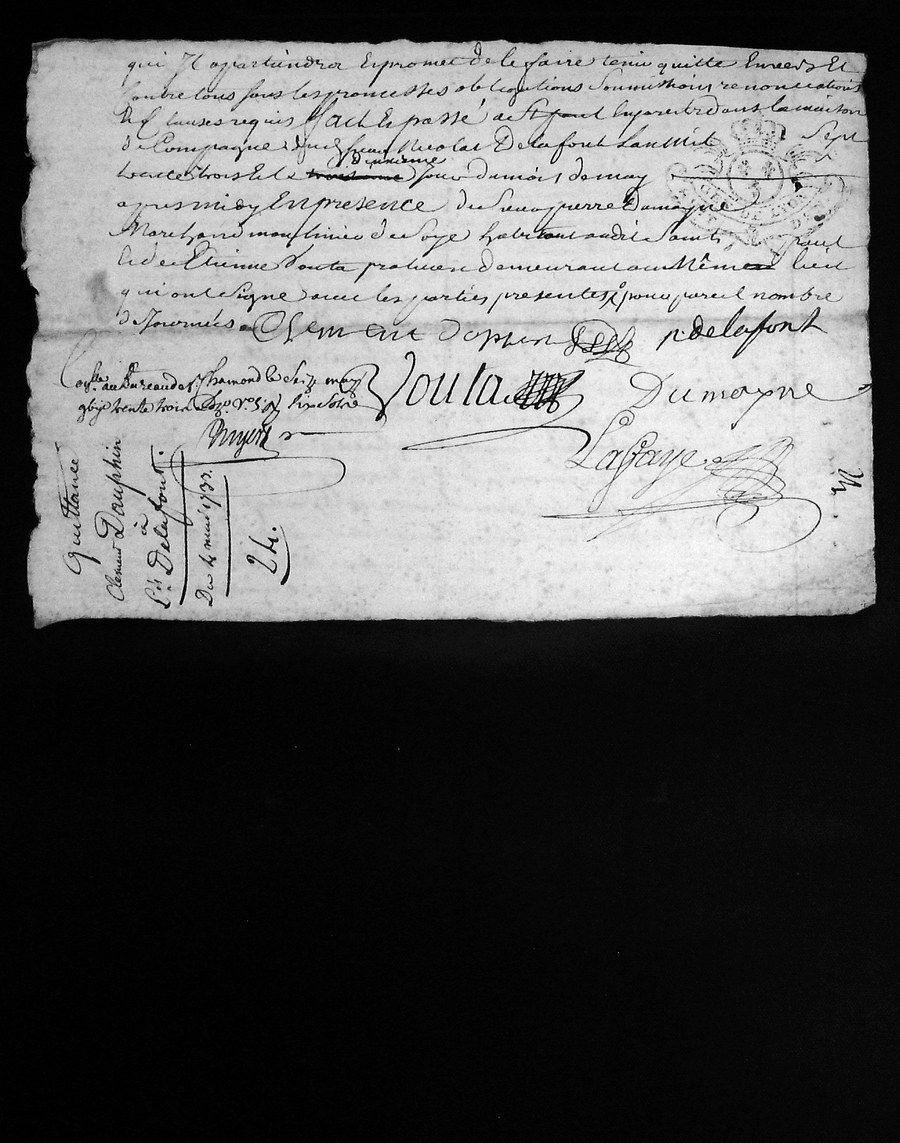 qui Il apartiendra Et promet de le faire tenir quitte Envers Et
Contre tous sous les promesses obligations Soumissions renonciations
Et Clauses requis fait Et passé a St paul En jarest dans la maison
de Campagne dud sieur Nicolas Delafont Lan Mil Sept
trente trois Et le troisieme deuxieme jour du mois de may
apres midy En presence de Sieur pierre Dumayne
Marchand moulinier de Soye habitant audit Saint paul
Et de Etienne Vouta praticien demeurant au Même lieu
qui ont Signé avec les parties presentes pour pareil nombre
de Journées
Clement Dophin n delafont
Conllé au Bureau de St Chamond le seize may
gbij trente trois
Vouta
Dumayne
Lafaye
Quittance
Clement Dauphin
à
Delafont
Du 1733
24.